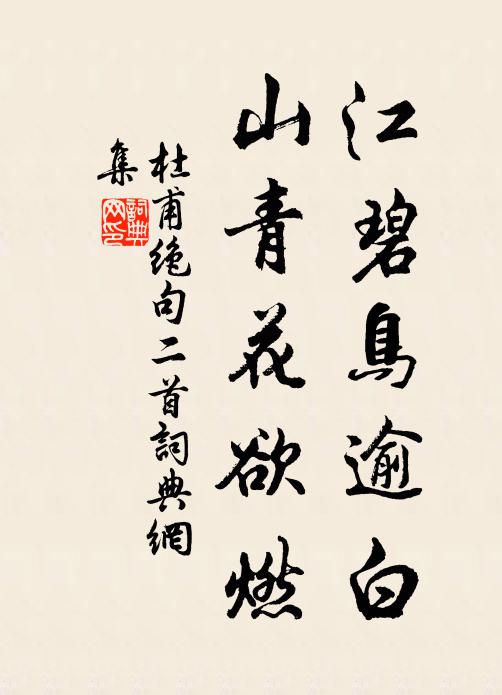 江碧鳥逾白
山青花欲燃
杜甫絶句二首詞典網
集
詞典
网印